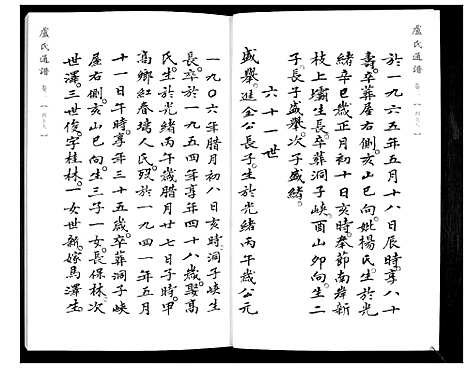 盧氏通譜
卷二
於一九六五年五月十八日辰時享八十
壽卒葬居右側亥山巳向妣楊氏生於光
緒辛巳歲正月初十日亥時奉節南岸新
枝上壩生長卒葬洞子峽酉山卯向生二
子長子盛舉次子盛緒
六十一世
盛舉進金公長子生於光緒丙午歲公元
一九〇六年腊月初八日亥時洞子峽生
長卒於一九五四年享年四十八歲娶高
氏生於光緒丙午歲腊月廿七日子時甲
高鄉紅春壪人氏歿於一九四一年五月
十一日午時享年三十五歲卒葬洞子峽
屋右側亥山巳向生三子一女長保林次
世澤三世俊字桂林一女世毓嫁馬澤生
盧氏通譜